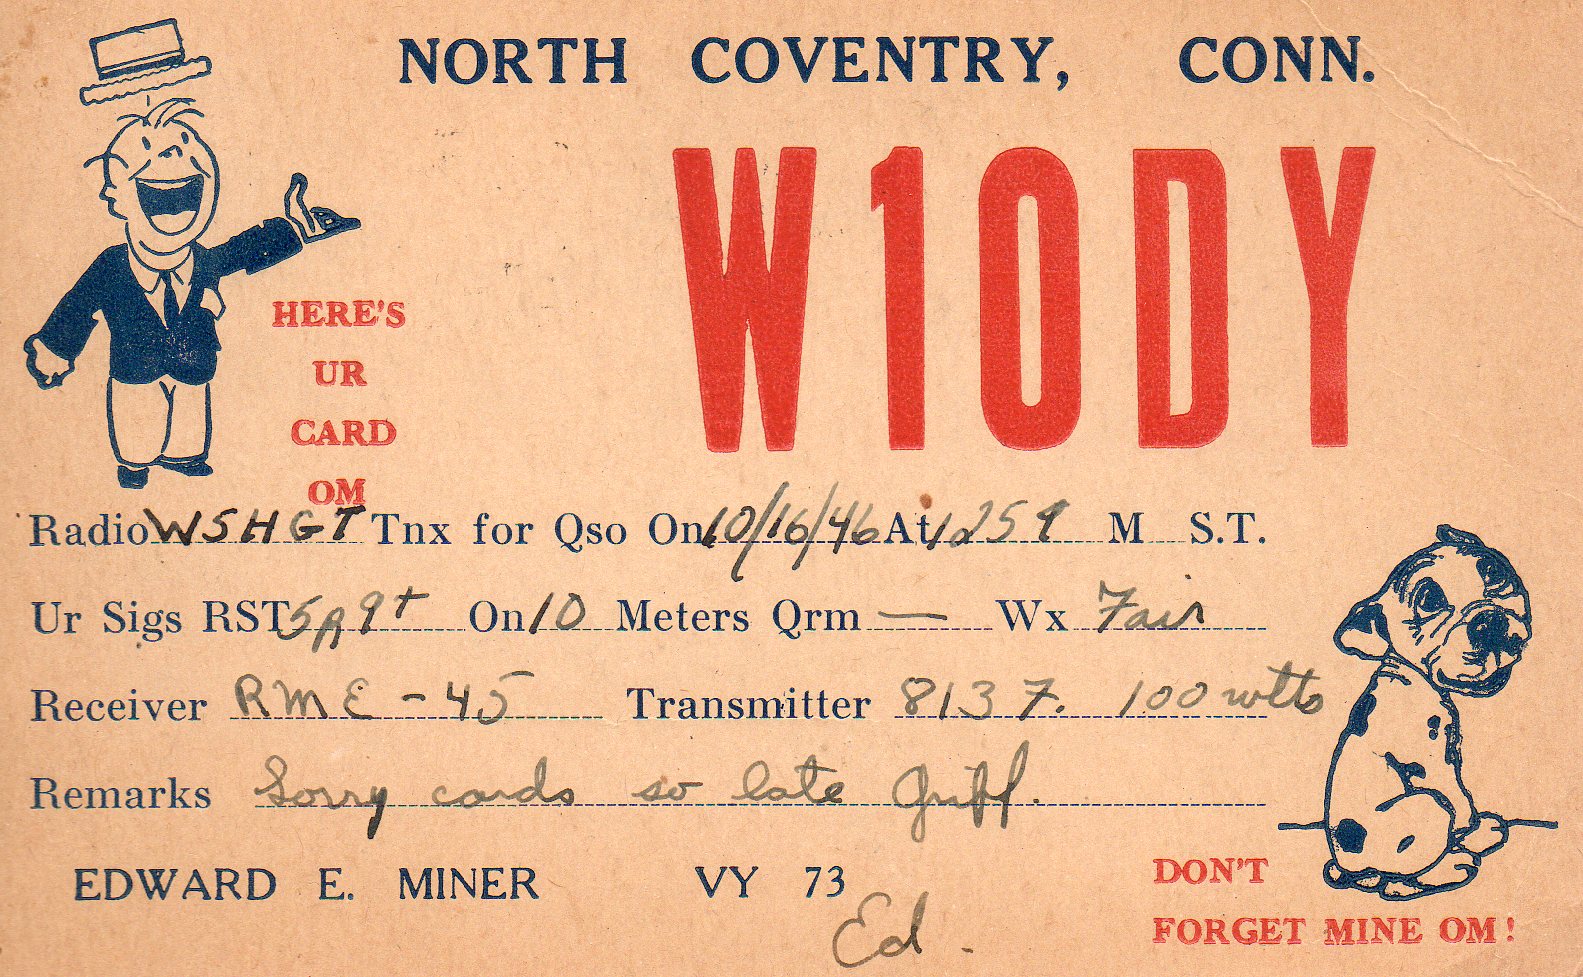 NORTH COVENTRY, CONN.
W1ODY
HERE'S
UR
CARD
OM
Radio W5HGT Tnx for Qso On 10/16/46 At 1259 M S.T.
Ur Sigs RST 5A9+ On 10 Meters Qrm — Wx Fair
Receiver RME-45 Transmitter 813 7. 100 wtts
Remarks Sorry cards so late Griff.
EDWARD E. MINER VY 73
Ed.
DON'T
FORGET MINE OM!